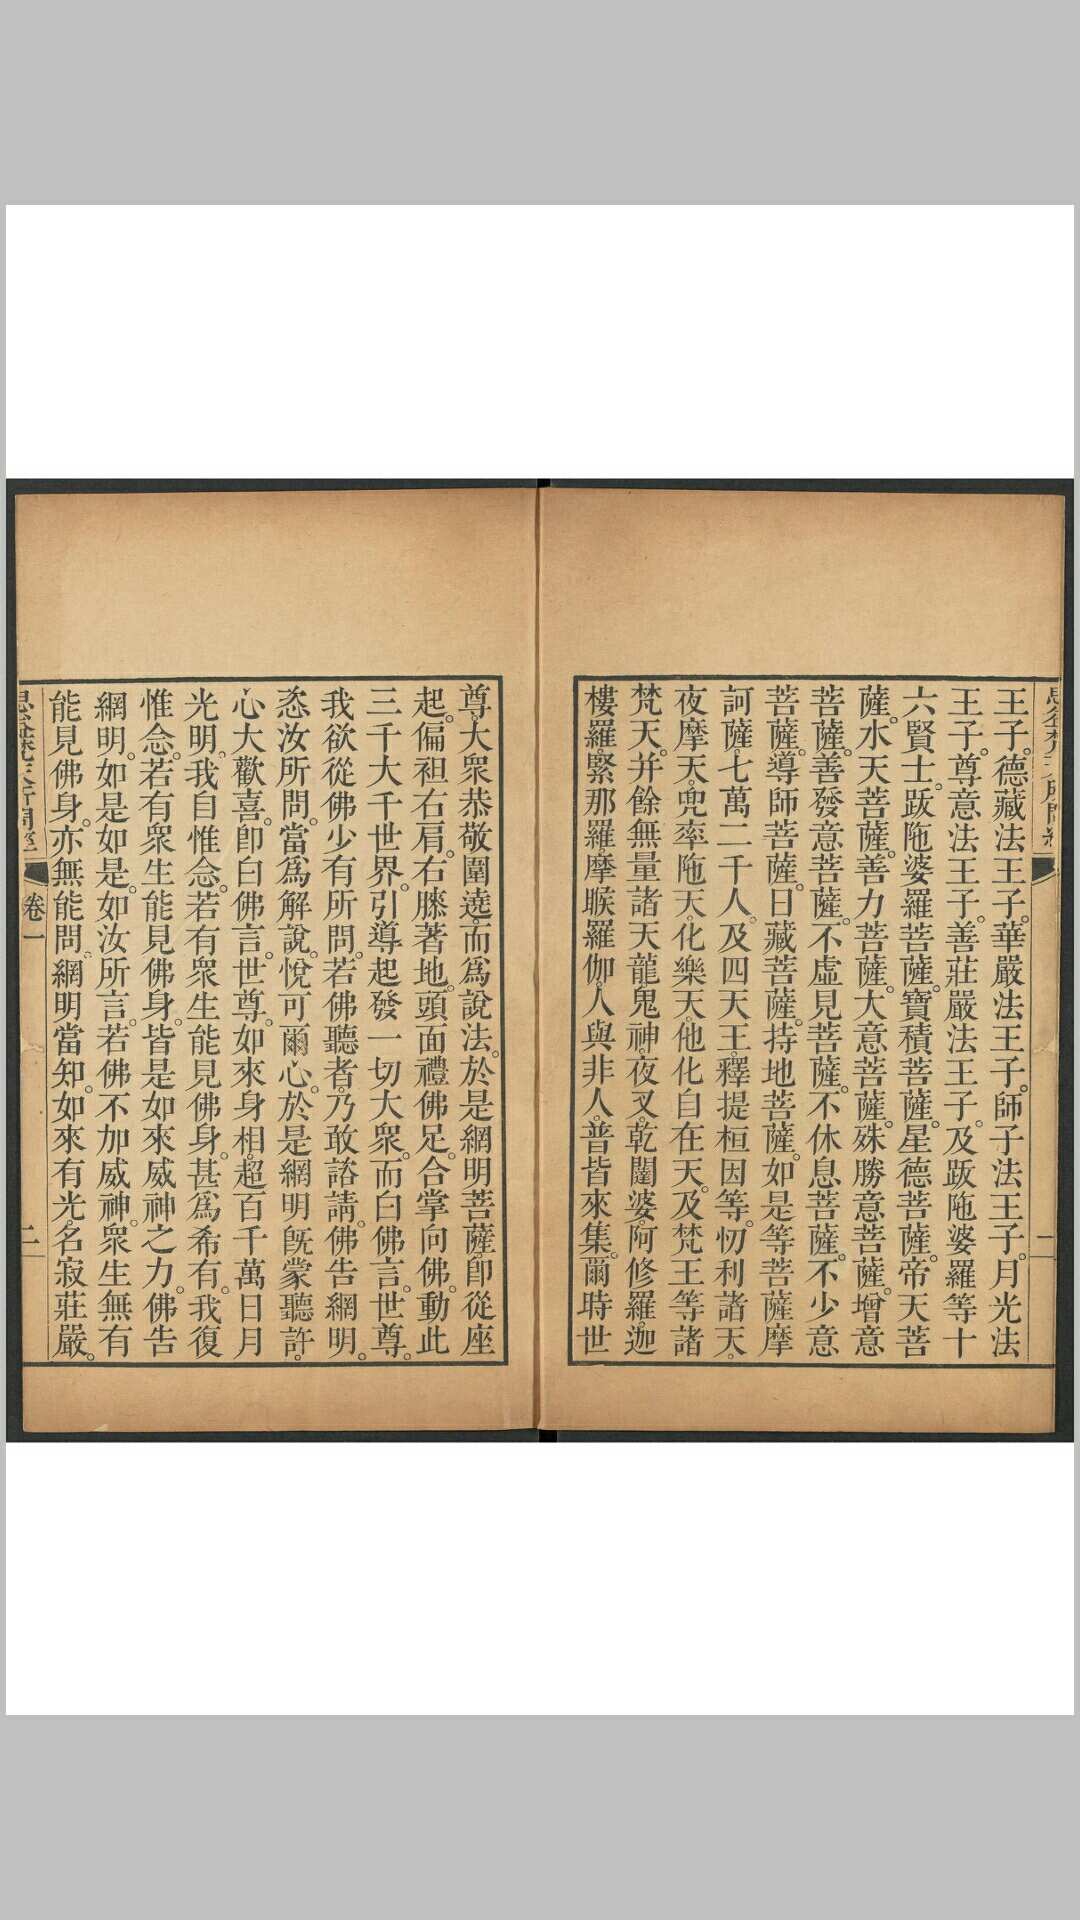 王子。德藏法王子。華嚴法王子。師子法王子。月光法
王子。尊意法王子。善莊嚴法王子。及跋陁婆羅等十
六賢士。跋陁婆羅菩薩。寶積菩薩。星德菩薩。帝天菩
薩。水天菩薩。善力菩薩。大意菩薩。殊勝意菩薩。增意
菩薩。善發意菩薩。不虛見菩薩。不休息菩薩。不少意
菩薩。導師菩薩。日藏菩薩。持地菩薩。如是等菩薩摩
訶薩。七萬二千人。及四天王。釋提桓因等。忉利諸天。
夜摩天。兜率陁天。化樂天。他化自在天。及梵王等諸
梵天。并餘無量諸天龍鬼神。夜叉。乾闥婆。阿修羅。迦
樓羅。緊那羅。摩睺羅伽。人與非人。普皆來集。爾時世
尊。大衆恭敬圍遶。而爲說法。於是網明菩薩。卽從座
起。偏袒右肩。右膝著地。頭面禮佛足。合掌向佛。動此
三千大千世界。引導起發一切大衆。而白佛言。世尊。
我欲從佛少有所問。若佛聽者。乃敢諮請。佛告網明。
恣汝所問。當爲解說。悅可爾心。於是網明旣蒙聽許。
心大歡喜。卽白佛言。世尊。如來身相。超百千萬日月
光明。我自惟念。若有衆生能見佛身。甚爲希有。我復
惟念。若有衆生能見佛身。皆是如來威神之力。佛告
網明。如是如是。如汝所言。若佛不加威神。衆生無有
能見佛身。亦無能問。網明當知。如來有光。名寂莊嚴。
思益梵天所問經
卷一
二